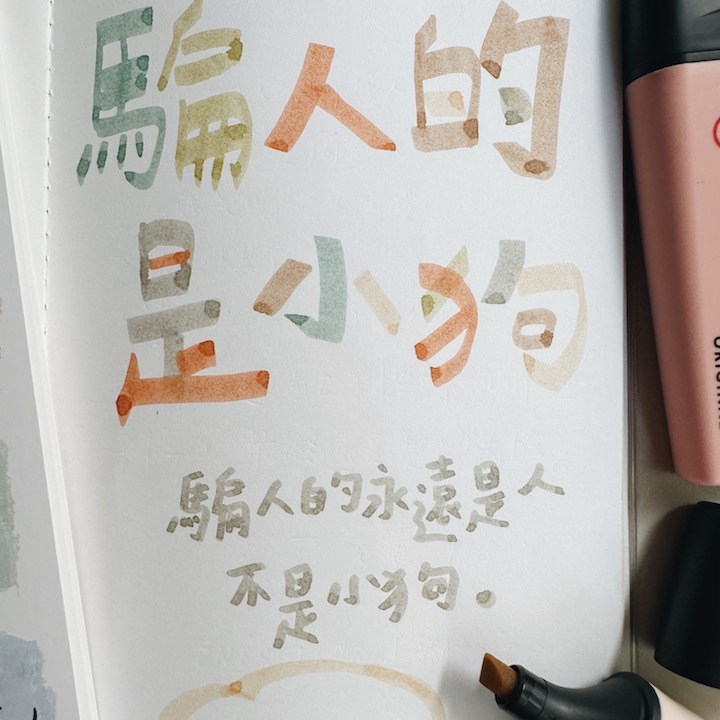 騙人的
是小狗
騙人的永遠是人
不是小狗。